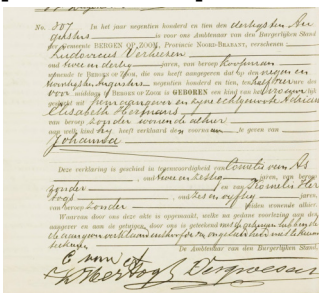 No. 807 In het jaar negentien honderd en tien den dertigsten Au
gustus is voor ons Ambtenaar van den Burgerlijken Stand
der Gemeente BERGEN OP ZOOM, Provincie NOORD-BRABANT, verschenen
Ludovicus
en twee en dertig jaren, van beroep Koopman
wonende te BERGEN OP ZOOM, die ons heeft aangegeven dat op den negen en
twintigsten Augustus negentien honderd en tien, des ure des
voor middags te BERGEN OP ZOOM is GEBOREN een kind van het vrouwelijk
geslacht uit hem aangever en zijne echtgenoote Adriana
Elisabeth Hertmans
van beroep zonder wonende alhier
aan welk kind hij heeft verklaard den voornaam te geven van
Johanna
Deze verklaring is geschied in tegenwoordigheid van Cornelis van As
zonder oud twee en zestig jaren, van beroep
zonder en van Cornelis Her
togs oud zes en vijftig jaren,
van beroep zonder beiden wonende alhier.
Waarvan door ons deze akte is opgemaakt, welke na gedane voorlezing aan den
aangever en aan de getuigen, door ons is geteekend met de getuigen hebbende
de aangever verklaard
teekenen
De Ambtenaar van den Burgerlijken Stand,
C van As
C Hertogs